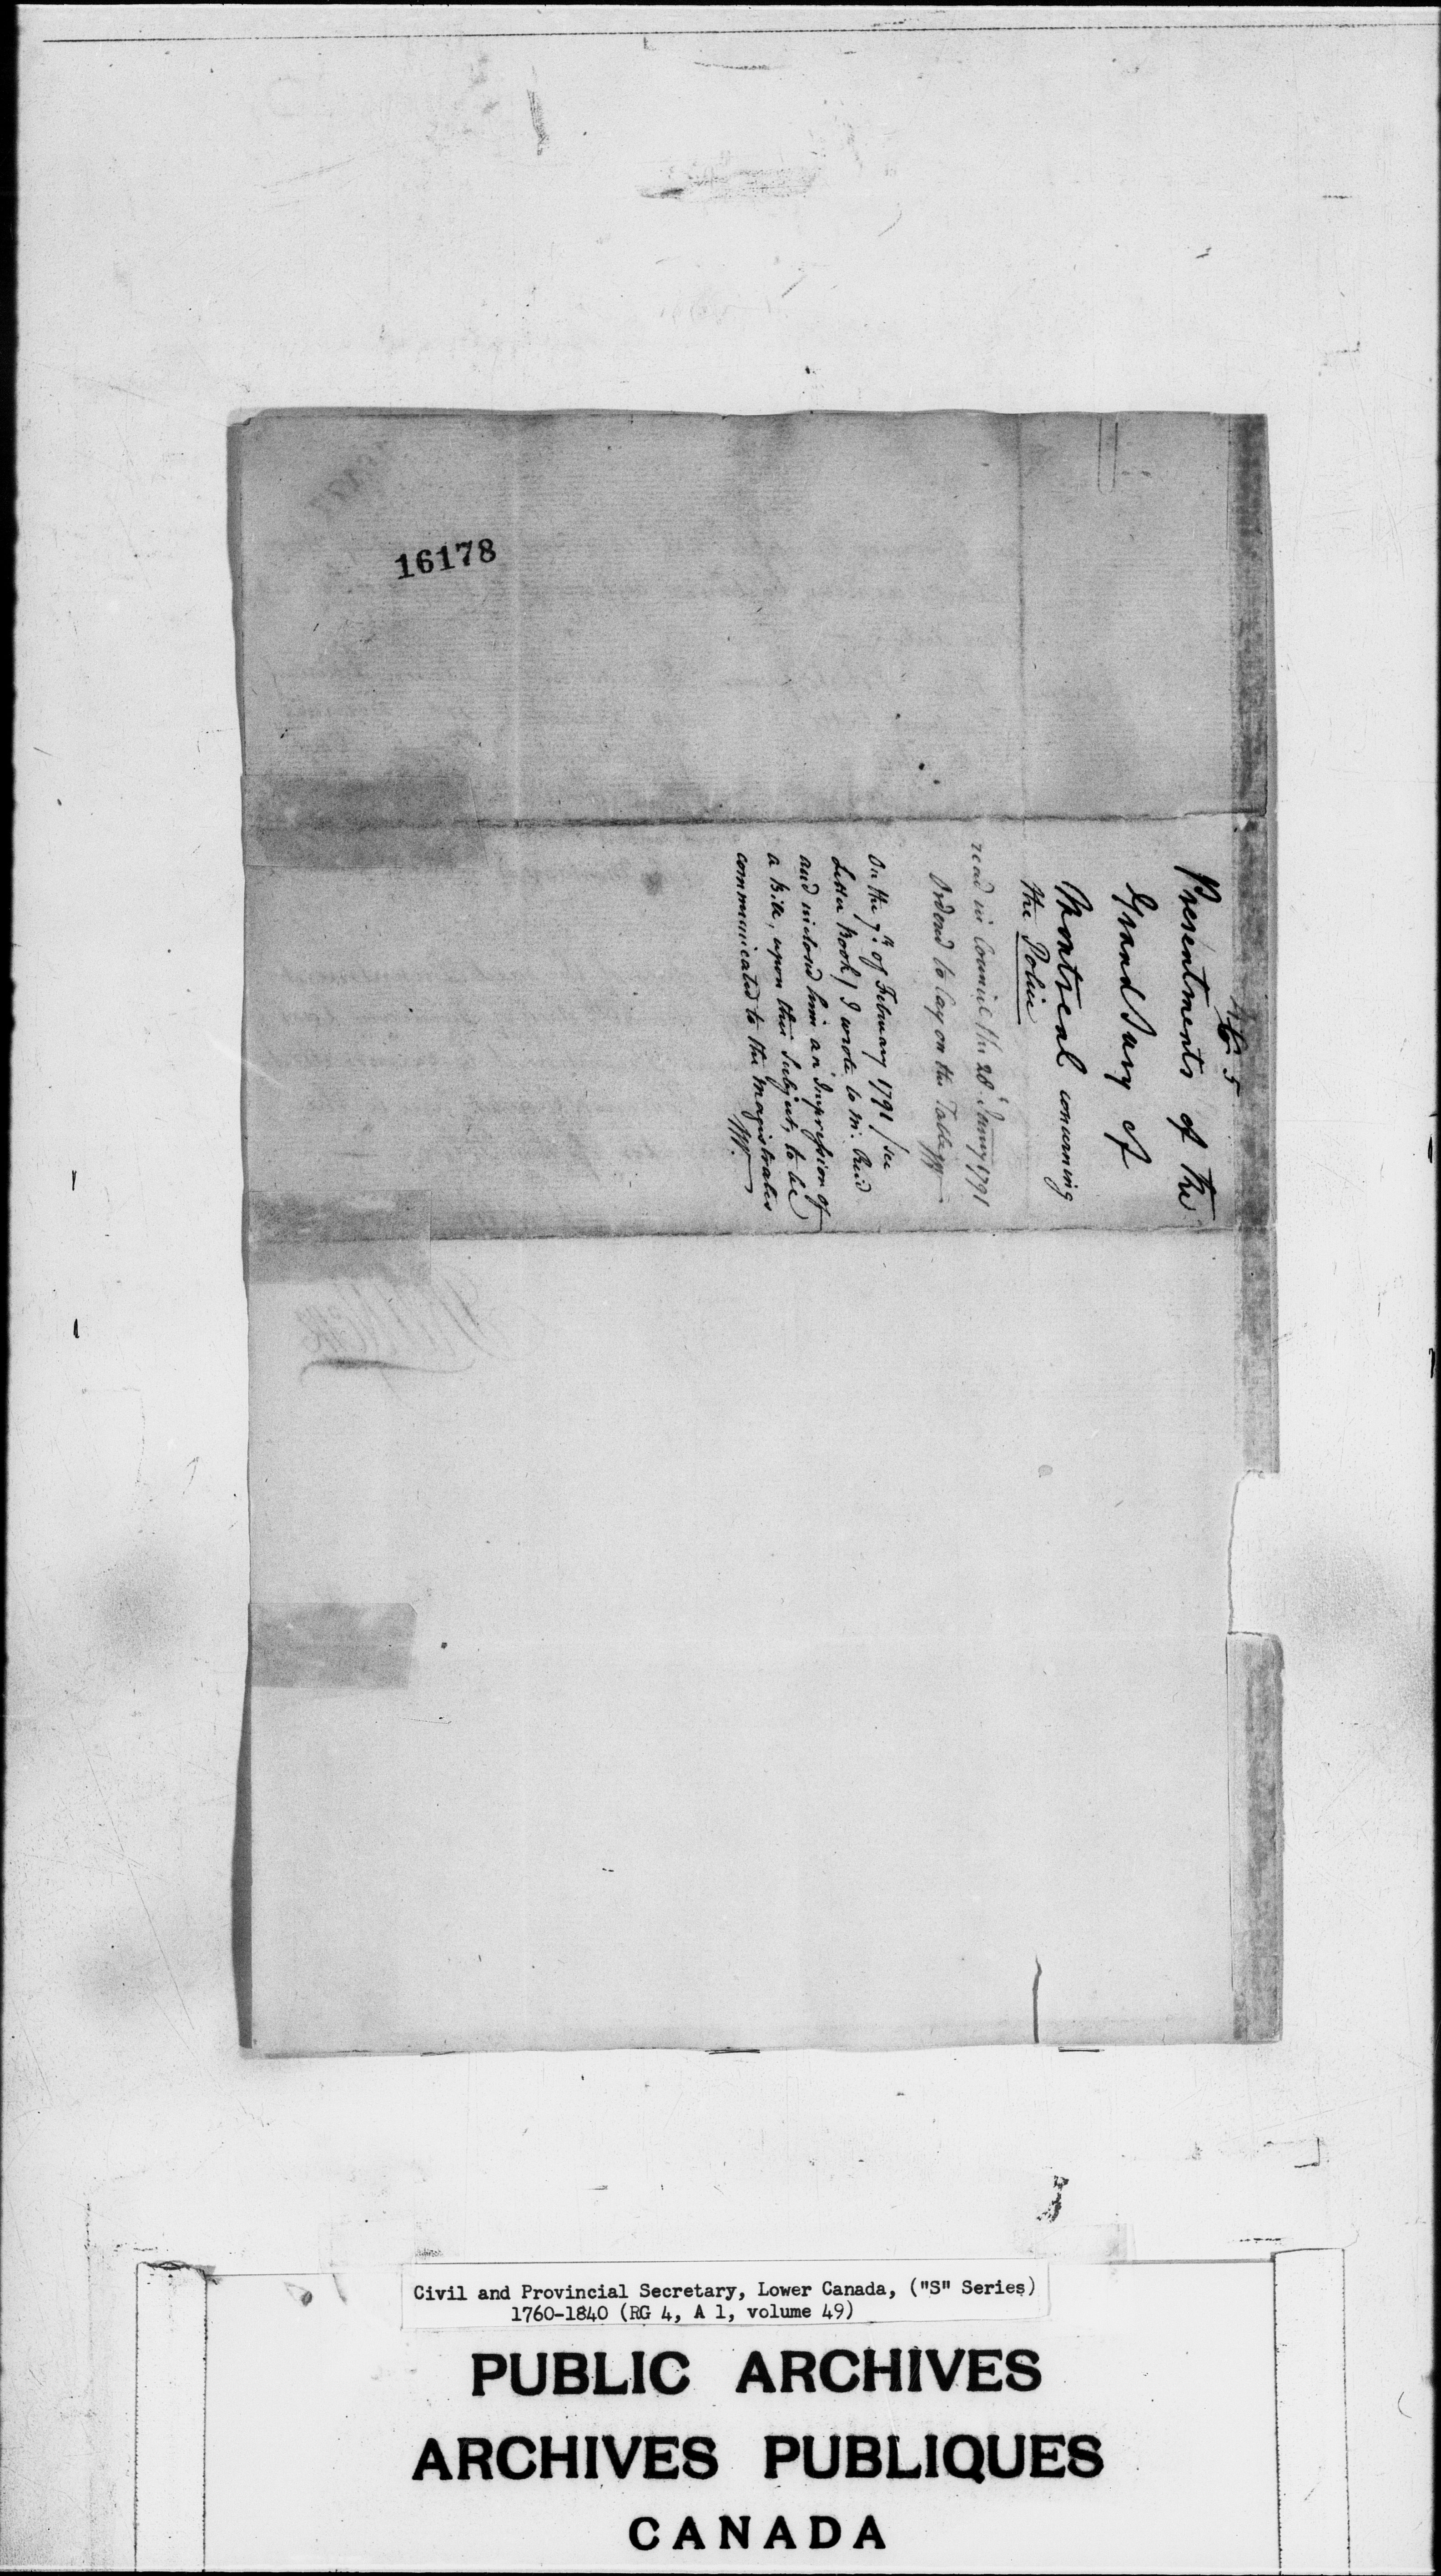 16178
5
Presentments of the
Grand Jury of
Montreal concerning
the Police
read in Council the 28 Janry 1791
Ordered to lay on the Table
On the 7th of February 1791 / see
Letter Book / I wrote to Mr. Reid
and inclosed him an Impression of
a Bill, upon this Subject, to be
communicated to the Magistrates
Civil and Provincial Secretary, Lower Canada, ("S" Series)
1760-1840 (RG 4, A 1, volume 49)
PUBLIC ARCHIVES
ARCHIVES PUBLIQUES
CANADA